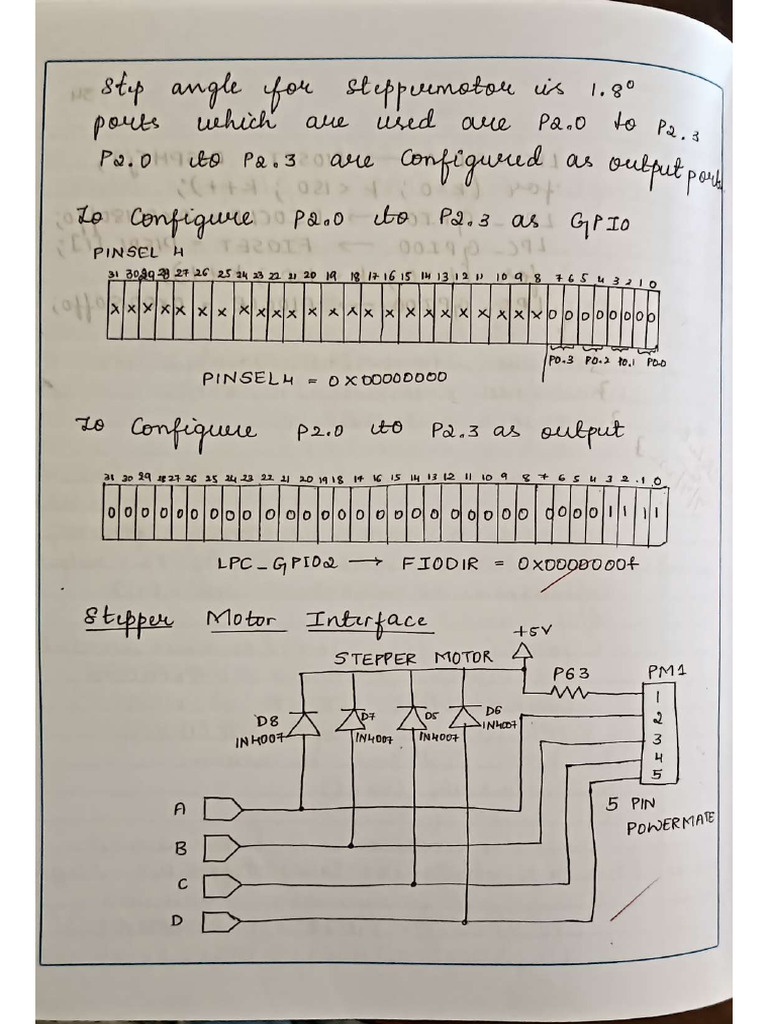 Step angle for steppermotor is 1.8°
ports which are used are P2.0 to P2.3
P2.0 to P2.3 are configured as output ports
To Configure P2.0 to P2.3 as GPIO
PINSEL 4
31 30 29 28 27 26 25 24 23 22 21 20 19 18 17 16 15 14 13 12 11 10 9 8 7 6 5 4 3 2 1 0
x x x x x x x x x x x x x x x x x x x x x x x x 0 0 0 0 0 0 0 0
P0.3 P0.2 P0.1 P0.0
PINSEL4 = 0X00000000
To Configure P2.0 to P2.3 as output
31 30 29 28 27 26 25 24 23 22 21 20 19 18 17 16 15 14 13 12 11 10 9 8 7 6 5 4 3 2 1 0
0 0 0 0 0 0 0 0 0 0 0 0 0 0 0 0 0 0 0 0 0 0 0 0 0 0 0 0 1 1 1 1
LPC_GPIO2 → FIODIR = 0X0000000f
Stepper Motor Interface
+5V
STEPPER MOTOR
P63
PM1
1
2
3
4
5
D8
IN4007
D7
IN4007
D5
IN4007
D6
IN4007
5 PIN
POWERMATE
A
B
C
D